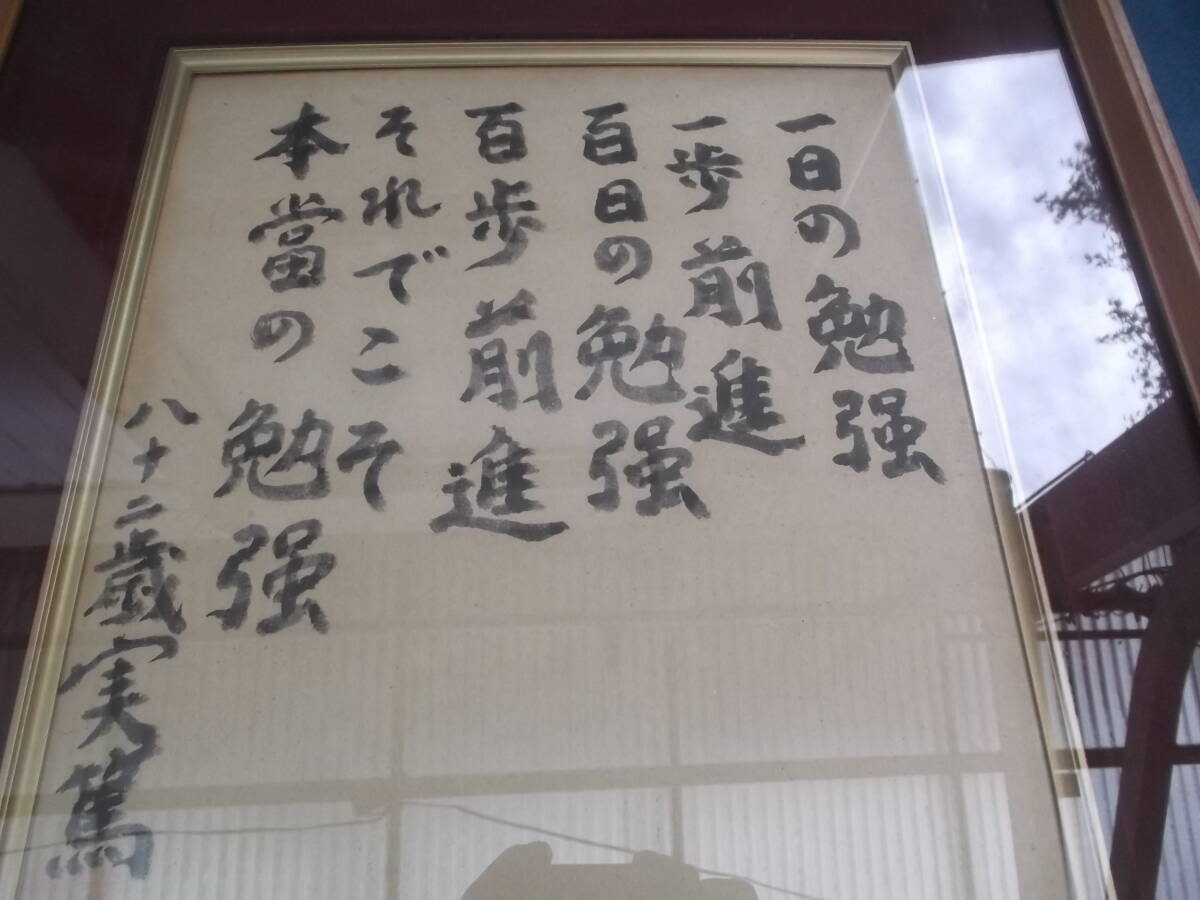 一日の勉强
一歩前進
百日の勉强
百歩前進
それでこそ
本當の勉强
八十二歳実篤